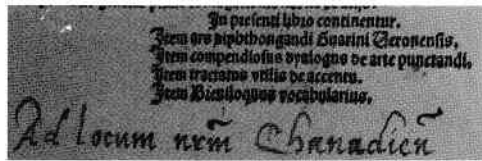 In presenti libro continentur.
Item ars diphthongandi Guarini Veronensis.
Item compendiosus dyalogus de arte punctandi.
Item tractatus utilis de accentu.
Item Breviloquus vocabularius.
Ad locum nrm̄ Chanadien̄